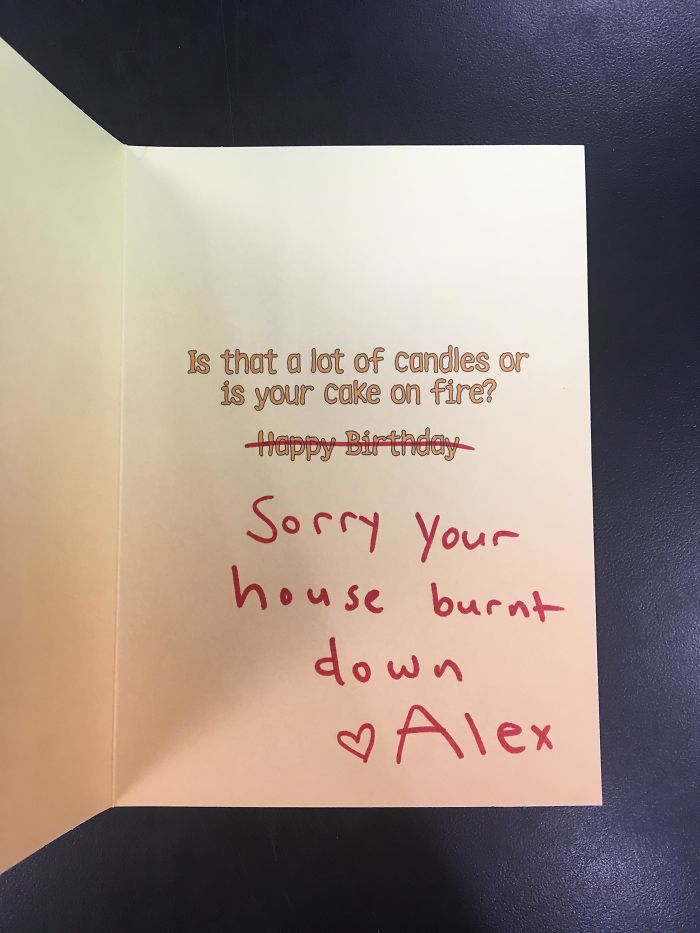 Is that a lot of candles or
is your cake on fire?
Happy Birthday
Sorry Your
house burnt
down
♡ Alex